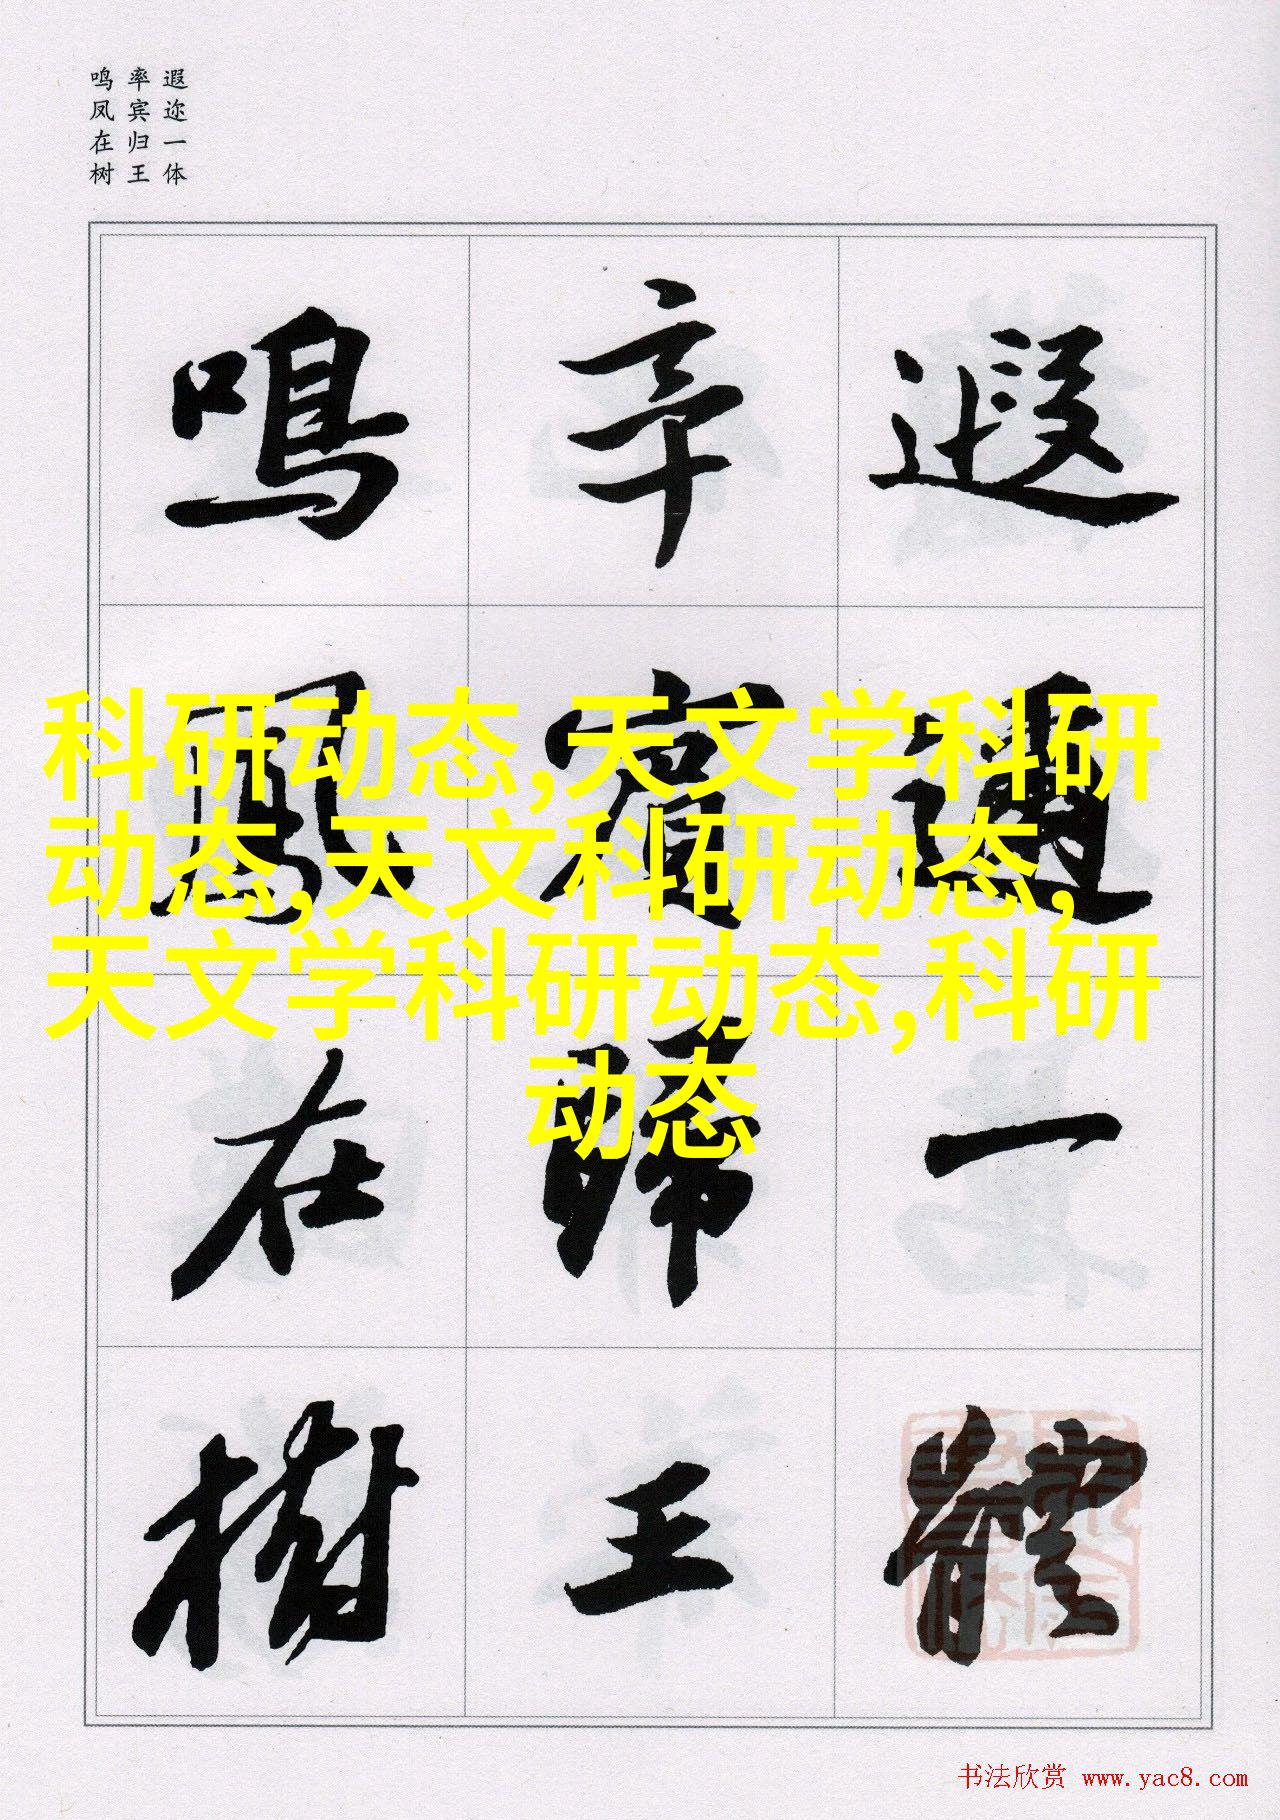 遐迩一体
率宾归王
鸣凤在树
遐邇一體
率賓歸王
鳴鳳在樹
科研动态,天文学科研
动态,天文科研动态,
天文学科研动态,科研
动态
书法欣赏 www.yac8.com